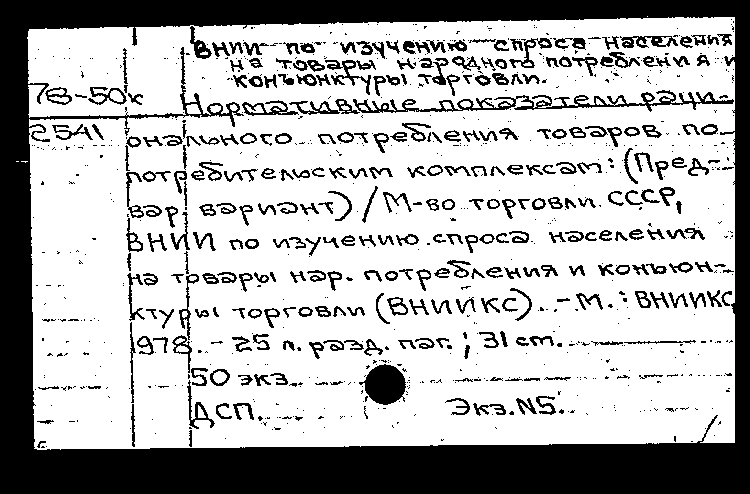 ВНИИ по изучению спроса населения
на товары народного потребления и
конъюнктуры торговли.
78-50к
Нормативные показатели раци-
2541
онального потребления товаров по
потребительским комплексам: (Пред-
вар. вариант) / М-во торговли СССР,
ВНИИ по изучению спроса населения
на товары нар. потребления и конъюн-
ктуры торговли (ВНИИКС). - М. : ВНИИКС
1978. - 25 л. разд. паг. ; 31 cm.
50 экз.
ДСП. Экз.N5.